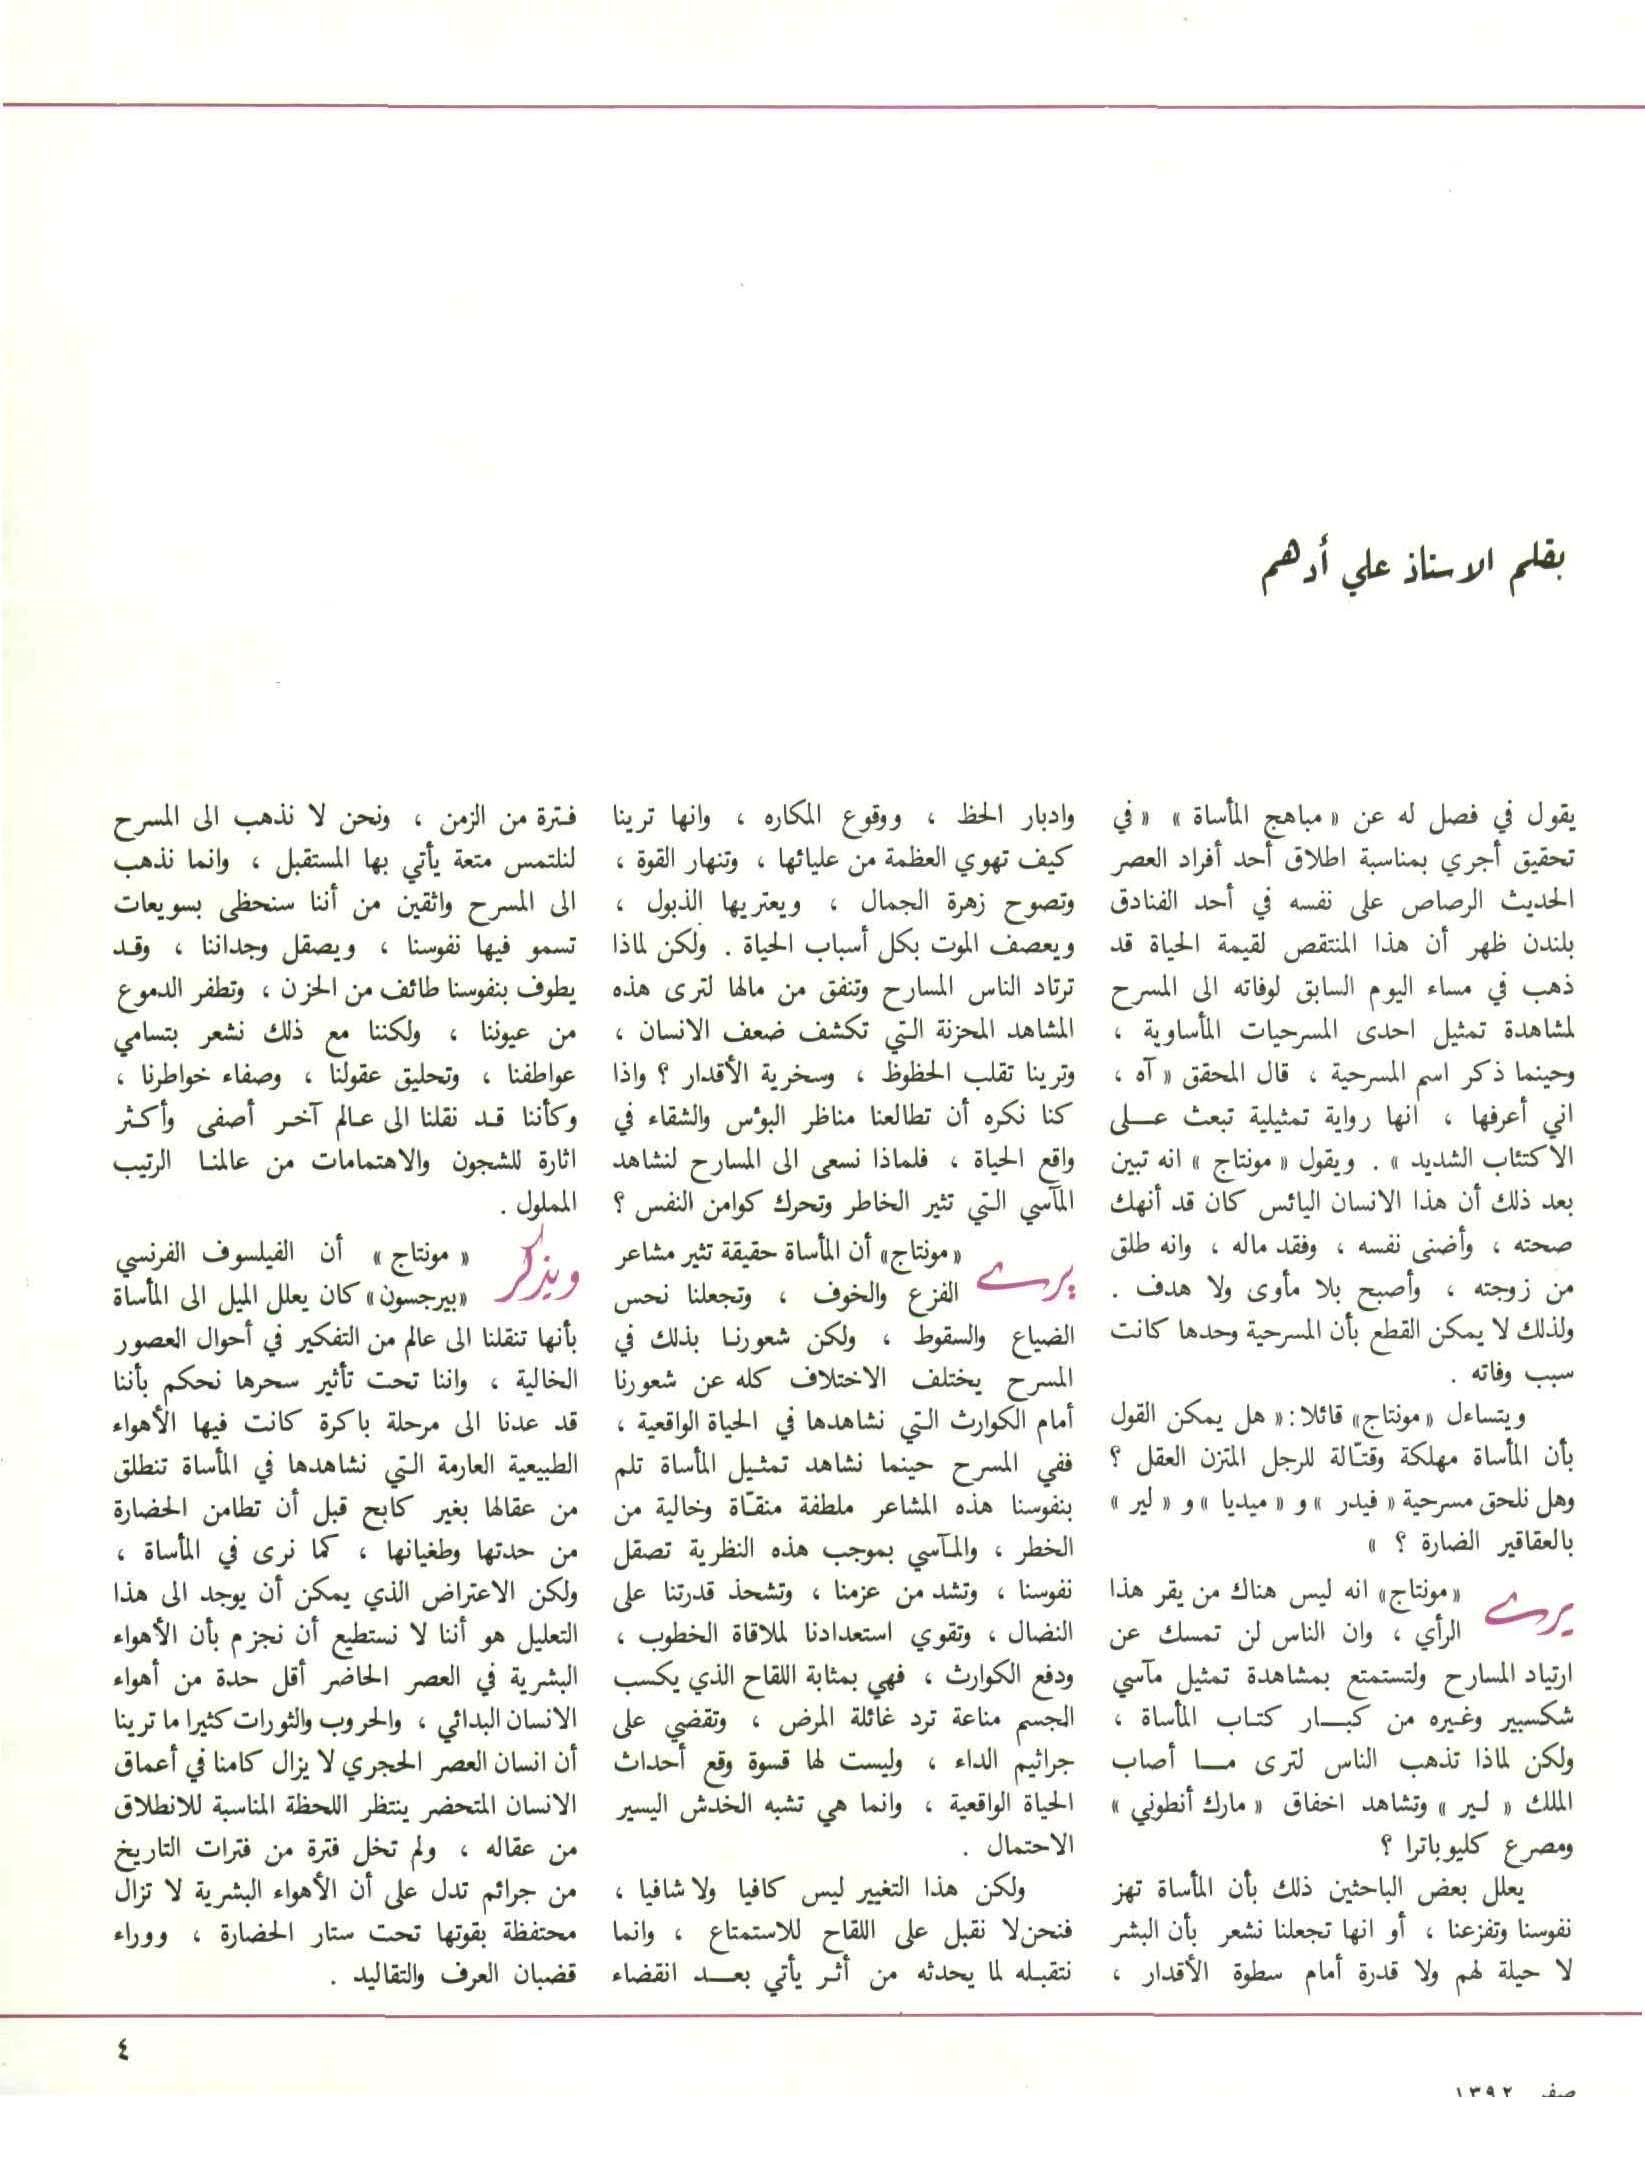 بقلم الاستاذ علي أدهم
يقول في فصل له عن « مباهج المأساة » « في
تحقيق أجري بمناسبة اطلاق أحد أفراد العصر
الحديث الرصاص على نفسه في أحد الفنادق
بلندن ظهر أن هذا المنتقص لقيمة الحياة قد
ذهب في مساء اليوم السابق لوفاته الى المسرح
لمشاهدة تمثيل احدى المسرحيات المأساوية ،
وحينما ذكر اسم المسرحية ، قال المحقق « آه ،
اني أعرفها ، انها رواية تمثيلية تبعث عـــلى
الاكتئاب الشديد » . ويقول « مونتاج » انه تبين
بعد ذلك أن هذا الانسان اليائس كان قد أنهك
صحته ، وأضنى نفسه ، وفقد ماله ، وانه طلق
من زوجته ، وأصبح بلا مأوى ولا هدف .
ولذلك لا يمكن القطع بأن المسرحية وحدها كانت
سبب وفاته .
ويتساءل «مونتاج» قائلا: « هل يمكن القول
بأن المأساة مهلكة وقتّالة للرجل المتزن العقل ؟
وهل نلحق مسرحية « فيدر » و « ميديا » و « لير »
بالعقاقير الضارة ؟ »
يرى «مونتاج» انه ليس هناك من يقر هذا
الرأي ، وان الناس لن تمسك عن
ارتياد المسارح ولتستمتع بمشاهدة تمثيل مآسي
شكسبير وغيره من كبـــار كتاب المأساة ،
ولكن لماذا تذهب الناس لترى مـــا أصاب
الملك « لير » وتشاهد اخفاق « مارك أنطوني »
ومصرع كليوباترا ؟
يعلل بعض الباحثين ذلك بأن المأساة تهز
نفوسنا وتفزعنا ، أو انها تجعلنا نشعر بأن البشر
لا حيلة لهم ولا قدرة أمام سطوة الأقدار ،
وادبار الحظ ، ووقوع المكاره ، وانها ترينا
كيف تهوي العظمة من عليائها ، وتنهار القوة ،
وتصوح زهرة الجمال ، ويعتريها الذبول ،
ويعصف الموت بكل أسباب الحياة . ولكن لماذا
ترتاد الناس المسارح وتنفق من مالها لترى هذه
المشاهد المحزنة التي تكشف ضعف الانسان ،
وترينا تقلب الحظوظ ، وسخرية الأقدار ؟ واذا
كنا نكره أن تطالعنا مناظر البؤس والشقاء في
واقع الحياة ، فلماذا نسعى الى المسارح لنشاهد
المآسي التي تثير الخاطر وتحرك كوامن النفس ؟
يرى «مونتاج» أن المأساة حقيقة تثير مشاعر
الفزع والخوف ، وتجعلنا نحس
الضياع والسقوط ، ولكن شعورنا بذلك في
المسرح يختلف الاختلاف كله عن شعورنا
أمام الكوارث التي نشاهدها في الحياة الواقعية ،
ففي المسرح حينما نشاهد تمثيل المأساة تلم
بنفوسنا هذه المشاعر ملطفة منقّاة وخالية من
الخطر ، والمآسي بموجب هذه النظرية تصقل
نفوسنا ، وتشد من عزمنا ، وتشحذ قدرتنا على
النضال ، وتقوي استعدادنا لملاقاة الخطوب ،
ودفع الكوارث ، فهي بمثابة اللقاح الذي يكسب
الجسم مناعة ترد غائلة المرض ، وتقضي على
جراثيم الداء ، وليست لها قسوة وقع أحداث
الحياة الواقعية ، وانما هي تشبه الخدش اليسير
الاحتمال .
ولكن هذا التغيير ليس كافيا ولا شافيا ،
فنحن لا نقبل على اللقاح للاستمتاع ، وانما
نتقبله لما يحدثه من أثر يأتي بعـــد انقضاء
فترة من الزمن ، ونحن لا نذهب الى المسرح
لنلتمس متعة يأتي بها المستقبل ، وانما نذهب
الى المسرح واثقين من أننا سنحظى بسويعات
تسمو فيها نفوسنا ، ويصقل وجداننا ، وقد
يطوف بنفوسنا طائف من الحزن ، وتطفر الدموع
من عيوننا ، ولكننا مع ذلك نشعر بتسامي
عواطفنا ، وتحليق عقولنا ، وصفاء خواطرنا ،
وكأننا قد نقلنا الى عالم آخر أصفى وأكثر
اثارة للشجون والاهتمامات من عالمنا الرتيب
المملول .
ويذكر « مونتاج » أن الفيلسوف الفرنسي
«بيرجسون» كان يعلل الميل الى المأساة
بأنها تنقلنا الى عالم من التفكير في أحوال العصور
الخالية ، واننا تحت تأثير سحرها نحكم بأننا
قد عدنا الى مرحلة باكرة كانت فيها الأهواء
الطبيعية العارمة التي نشاهدها في المأساة تنطلق
من عقالها بغير كابح قبل أن تطامن الحضارة
من حدتها وطغيانها ، كما نرى في المأساة ،
ولكن الاعتراض الذي يمكن أن يوجد الى هذا
التعليل هو أننا لا نستطيع أن نجزم بأن الأهواء
البشرية في العصر الحاضر أقل حدة من أهواء
الانسان البدائي ، والحروب والثورات كثيرا ما ترينا
أن انسان العصر الحجري لا يزال كامنا في أعماق
الانسان المتحضر ينتظر اللحظة المناسبة للانطلاق
من عقاله ، ولم تخل فترة من فترات التاريخ
من جرائم تدل على أن الأهواء البشرية لا تزال
محتفظة بقوتها تحت ستار الحضارة ، ووراء
قضبان العرف والتقاليد .
٤
صفر ١٣٩٢